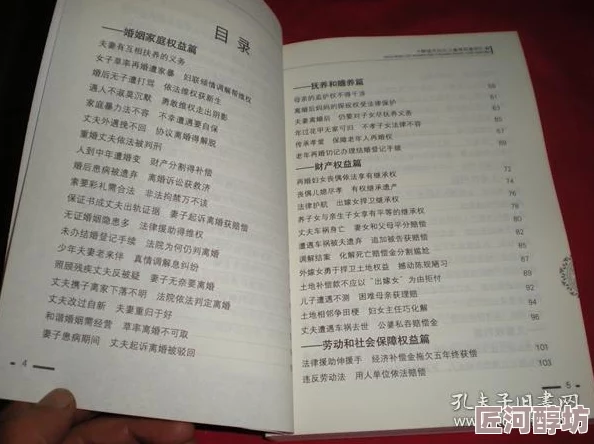 目录
——婚姻家庭权益篇
夫妻有互相扶养的义务
女子草率再婚遭家暴 妇联倾情调解帮维权
婚后无子遭打骂 依法维权获新生
遇人不淑莫沉默 勇敢维权走出阴影
家庭暴力不容 不幸遭遇要自保
丈夫外遇挽不回 协议离婚得解脱
重婚丈夫依法被判刑
人到中年遭婚变 财产分割得补偿
婚后患病被遗弃 离婚诉讼获救济
索要彩礼需合法 非法拘禁万不该
保证书成丈夫出轨证据 妻子起诉离婚获赔偿
无证婚姻隐患多 法律援助得维权
未办结婚登记手续 法院为何仍判离婚
少年夫妻老来伴 真情调解息纠纷
照顾残疾丈夫反被疑 妻子无奈要离婚
丈夫携子离家下落不明 法院依法判定离婚
丈夫改过自新 夫妻重归于好
和谐婚姻需经营 草率离婚不可取
妻子患病期间 丈夫起诉离婚被驳回
4
——抚养和赡养篇
母亲的监护权不得干涉 59
离婚后妈妈的探视权受法律保护 61
夫妻离婚后 仍要对子女尽抚养义务 63
年过花甲无家可归 不孝子女法律不容 65
传承孝爱 保障老年人再婚权 67
老年再婚切记办理结婚登记手续 69
——财产权益篇
再婚妇女丧偶依法享有继承权 72
丧偶儿媳尽孝 有权继承遗产 74
法律护航 出嫁女捍卫继承权 76
养子女与亲生子女享有平等的继承权 78
丈夫车祸身亡 妻女和父母平分赔偿 80
遭遇车祸被夫弃 追加被告获赔偿 82
调解结案 化解死亡赔偿金分割尴尬 84
外嫁女勇于捍卫土地权益 撼动陈规陋习
土地补偿款不应以“出嫁女”为由拒付
儿子遭遇不测 困难母亲获理赔
土地相邻争田梗 妇女主任巧化解 94
丈夫遭遇车祸去世 公婆私吞赔偿金 96
——劳动和社会保障权益篇
法律援助伸援手 经济补偿金拖欠五年终获偿 101
违反劳动法 用人单位依法赔偿 103
5
孔夫子旧书网
匠河醇坊